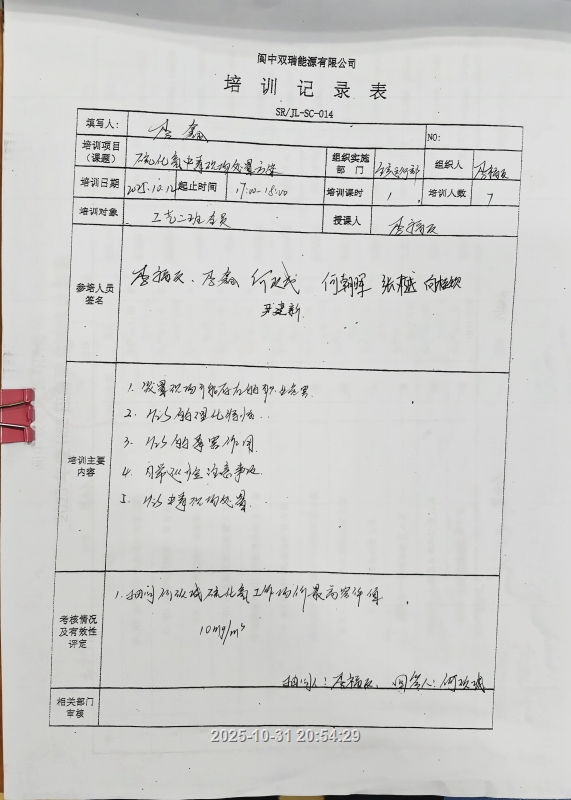 阆中双瑞能源有限公司
培训记录表
SR/JL-SC-014
填写人： 李鑫 NO:
培训项目（课题） 硫化氢中毒现场处置方案 组织实施部门 组织人 李福友
培训日期 2025.10.12 起止时间 17:00-18:00 培训课时 1 培训人数 7
培训对象 工艺二班全员 授课人 李福友
参培人员签名 李福友、李鑫 何双成 何朝晖 张樾
尹建新
培训主要内容
1. 装置现场可能存在的职业危害
2. H2S的理化特性.
3. H2S的毒害作用
4. 日常巡检注意事项
5. H2S中毒现场处置.
考核情况及有效性评定
1.抽问何双成硫化氢工作场所最高容许值.
10mg/m³
抽问人：李福友、回答人：何双成
相关部门审核
2025-10-31 20:54:29